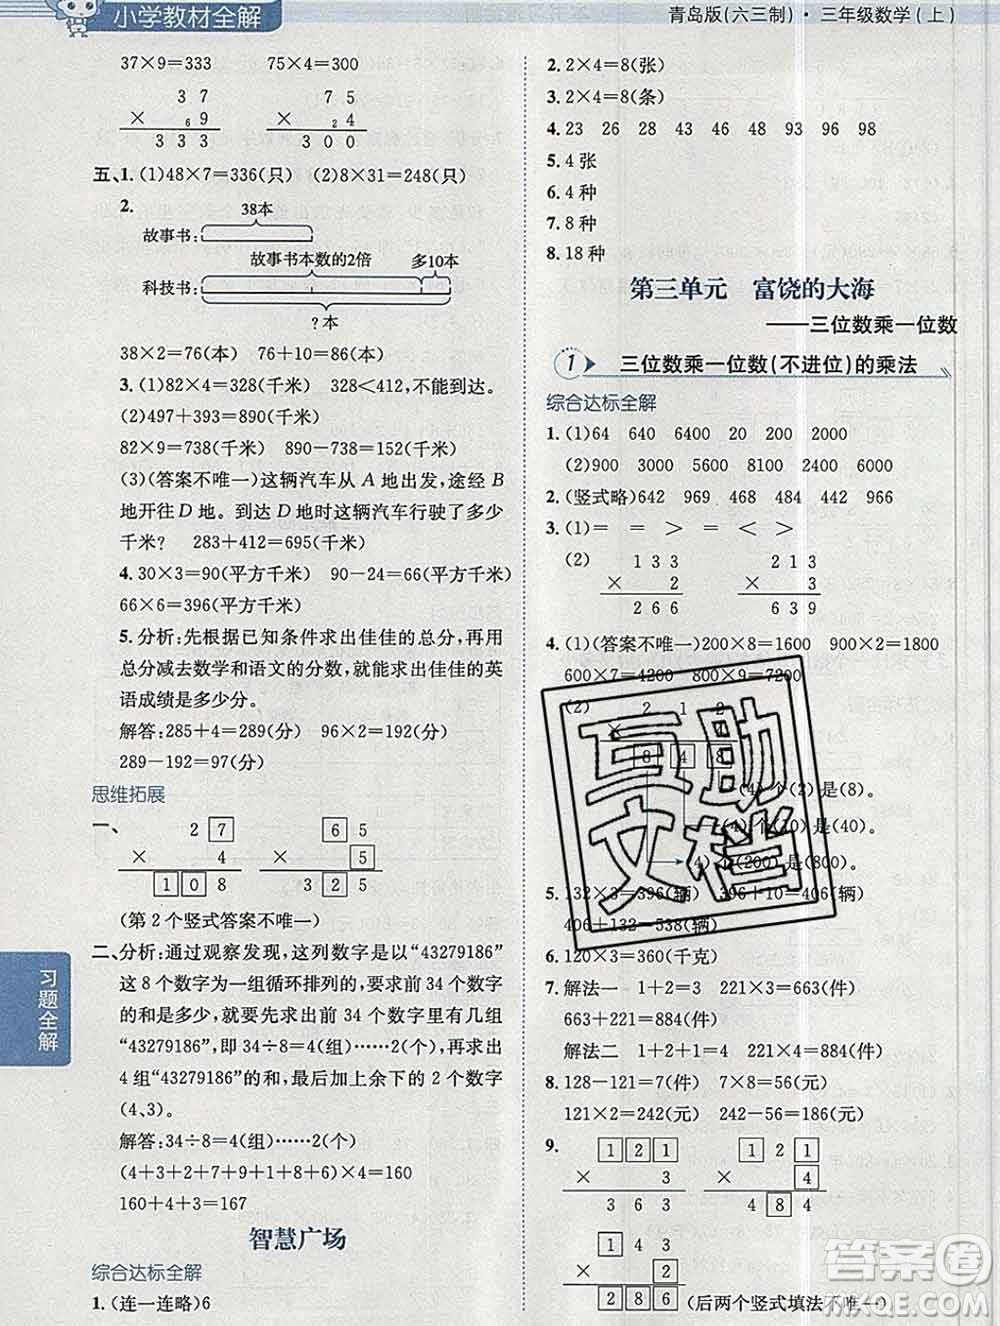 小学教材全解
青岛版(六三制)·三年级数学(上)
37×9=333 75×4=300
3 7 7 5
× 6 9 × 2 4
3 3 3 3 0 0
五、1. (1)48×7=336(只) (2)8×31=248(只)
2.
38本
故事书:
故事书本数的2倍 多10本
科技书:
?本
38×2=76(本) 76+10=86(本)
3. (1)4×82=328(千米) 328<412,不能到达。
(2)497+393=890(千米)
82×9=738(千米) 890-738=152(千米)
(3)(答案不唯一)这辆汽车从A地出发,途经B
地开往D地。到达D地时这辆汽车行驶了多少
千米? 283+412=695(千米)
4. 30×3=90(平方千米) 90-24=66(平方千米)
66×6=396(平方千米)
5. 分析:先根据已知条件求出佳佳的总分,再用
总分减去数学和语文的分数,就能求出佳佳的英
语成绩是多少分。
解答:285+4=289(分) 96×2=192(分)
289-192=97(分)
思维拓展
一、
2 7 6 5
× 4 × 5
1 0 8 3 2 5
(第2个竖式答案不唯一)
二、分析:通过观察发现,这列数字是以“43279186”
这8个数字为一组循环排列的。要求出前34个数字
的和是多少,就要先求出前34个数字里有几组
“43279186”,即34÷8=4(组)……2(个),再求出
4组“43279186”的和,最后加上余下的2个数字
(4、3)。
解答:34÷8=4(组)……2(个)
(4+3+2+7+9+1+8+6)×4=160
160+4+3=167
智慧广场
综合达标全解
1. (连一连略)6
习题全解
2. 2×4=8(张)
3. 2×4=8(条)
4. 23 26 28 43 46 48 93 96 98
5. 4张
6. 4种
7. 8种
8. 18种
第三单元 富饶的大海
——三位数乘一位数
1 三位数乘一位数(不进位)的乘法
综合达标全解
1. (1)64 640 6400 20 200 2000
(2)900 3000 600 1500 2800 6000
2. (竖式略)642 969 468 484 442 966
3. (1)= = > = < >
(2) 1 3 3 2 3 3
× 2 × 3
2 6 6 6 9 9
4. (1)(答案不唯一)200×8=1600 900×2=1800
600×7=4200 800×9=7200
(2) 2 1 2
×
8 4 8
(4)个(2)是(8)。
(4)个(10)是(40)。
(4)个(200)是(800)。
5. 132×3=396(辆) 396+10=406(辆)
406+132=538(辆)
6. 120×3=360(千克)
7. 解法一 1+2=3 221×3=663(件)
663+221=884(件)
解法二 1+2+1=4 221×4=884(件)
8. 128-121=7(件) 7×8=56(元)
121×2=242(元) 242-56=186(元)
9.
1 2 1 1 2 1
× 3 × 4
3 6 3 4 8 4
1 4 3
× 2
2 8 6 (后两个竖式填法不唯一)
互助
文档
答案圈